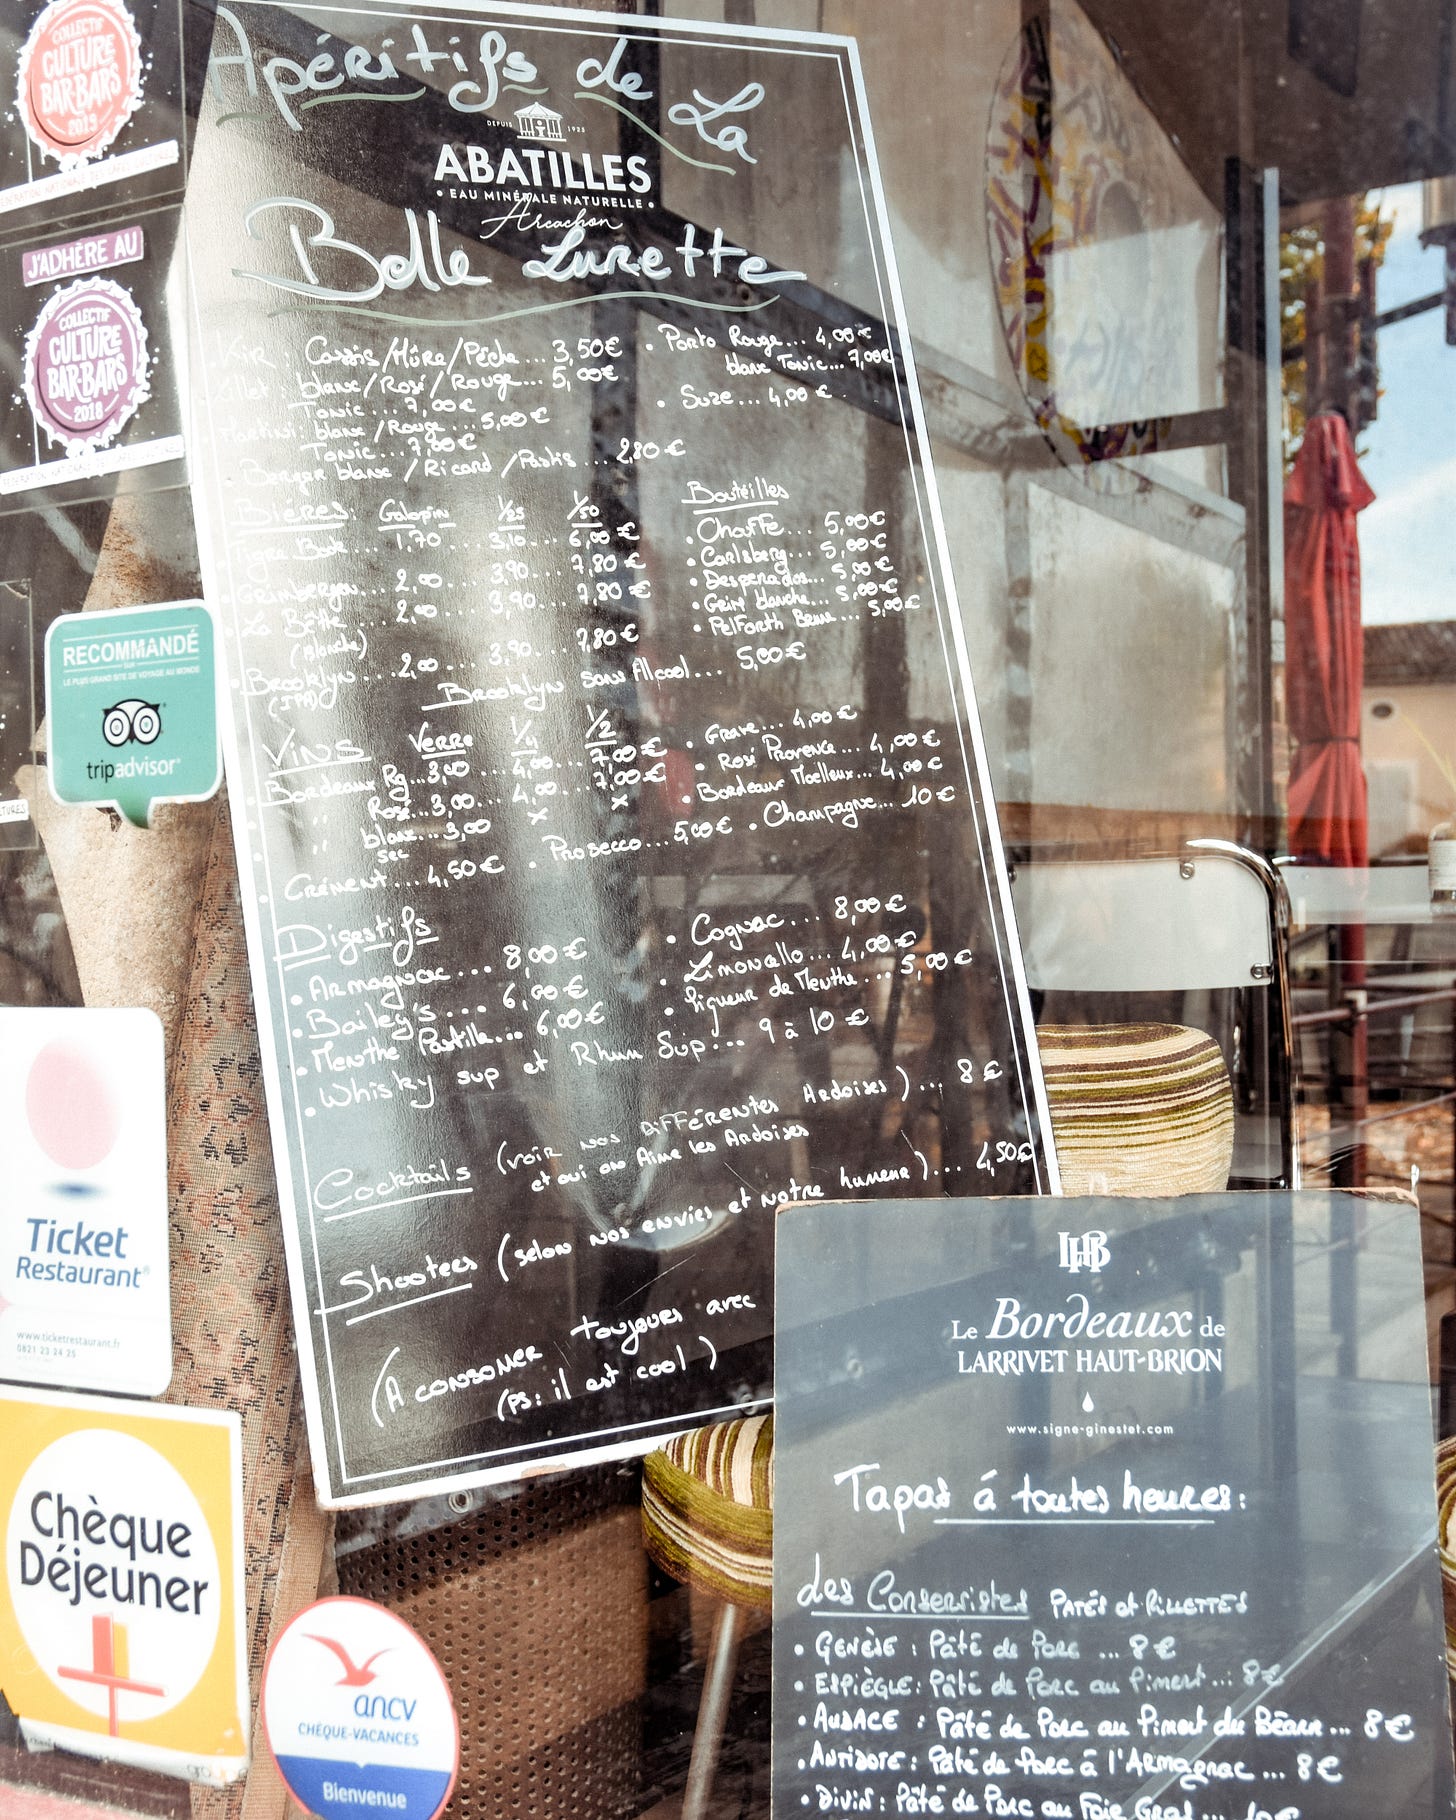 COLLECTIF
CULTURE
BAR-BARS
2019
FEDERATION NATIONALE DES CAFES CULTURES
J'ADHÈRE AU
COLLECTIF
CULTURE
BAR-BARS
2018
FEDERATION NATIONALE DES CAFES CULTURES
RECOMMANDÉ
SUR
LE PLUS GRAND SITE DE VOYAGE AU MONDE
tripadvisor®
Ticket
Restaurant®
www.ticketrestaurant.fr
0821 23 24 25
Chèque
Déjeuner
ancv
CHÈQUE-VACANCES
Bienvenue
Apéritifs de La
DEPUIS 1925
ABATILLES
• EAU MINÉRALE NATURELLE •
Arcachon
Belle Lurette
Kir : Cassis/Mûre/Pêche ... 3,50€
Lillet : blanc/Rosé/Rouge... 5,00€
Tonic ... 7,00€
Martini : blanc/Rouge ... 5,00€
Tonic ... 7,80€
Berger blanc / Ricard / Pastis ... 2,80€
• Porto Rouge... 4,00€
blanc Tonic... 7,00€
• Suze ... 4,00€
Bières : Galopin 1/25 1/50
Tigre Bock ... 1,70 .... 3,10 .... 6,00€
• Grimbergen ... 2,00 .... 3,90 .... 7,80€
• La Bête ... 2,00 .... 3,90 .... 7,80€
(blanche)
• Brooklyn ... 2,00 .... 3,90 .... 7,80€
(IPA)
Brooklyn sans Alcool ... 5,00€
Bouteilles
• Chouffe.... 5,00€
• Carlsberg... 5,00€
• Desperados... 5,00€
• Grim blanche... 5,00€
• Pelforth Brune ... 5,00€
Vins Verre 1/4 1/2
• Bordeaux Rg...3,00 .... 4,00 ... 7,00€
• " Rosé...3,00 .... 4,00 ... 7,00€
• " blanc...3,00 x x
sec
• Crément ... 4,50€ • Prosecco... 5,00€ • Champagne... 10€
• Grave.... 4,00€
• Rosé Provence ... 4,00€
• Bordeaux Moelleux... 4,00€
Digestifs
• Armagnac ... 8,00€
• Bailey's ... 6,00€
• Menthe Pastille... 6,00€
• Whisky sup et Rhum Sup... 9 à 10€
• Cognac ... 8,00€
• Limoncello ... 4,00€
• Liqueur de Menthe ... 5,00€
Cocktails (voir nos différentes Ardoises) ... 8€
et oui on Aime les Ardoises
Shooters (selon nos envies et notre humeur) ... 4,50€
(A consommer toujours avec
(PS: il est cool)
LHB
Le Bordeaux de
LARRIVET HAUT-BRION
www.signe-ginestet.com
Tapas á toutes heures:
Les Conserristes PATÉS et RILLETTES
• GENÈSE : Pâté de Porc ... 8€
• ESPIÈGLE : Pâté de Porc au Piment ... 8€
• AUDACE : Pâté de Porc au Piment du Béarn ... 8€
• ANTIDOTE : Pâté de Porc à l'Armagnac ... 8€
• DIVIN : Pâté de Porc au Foie Gras ...